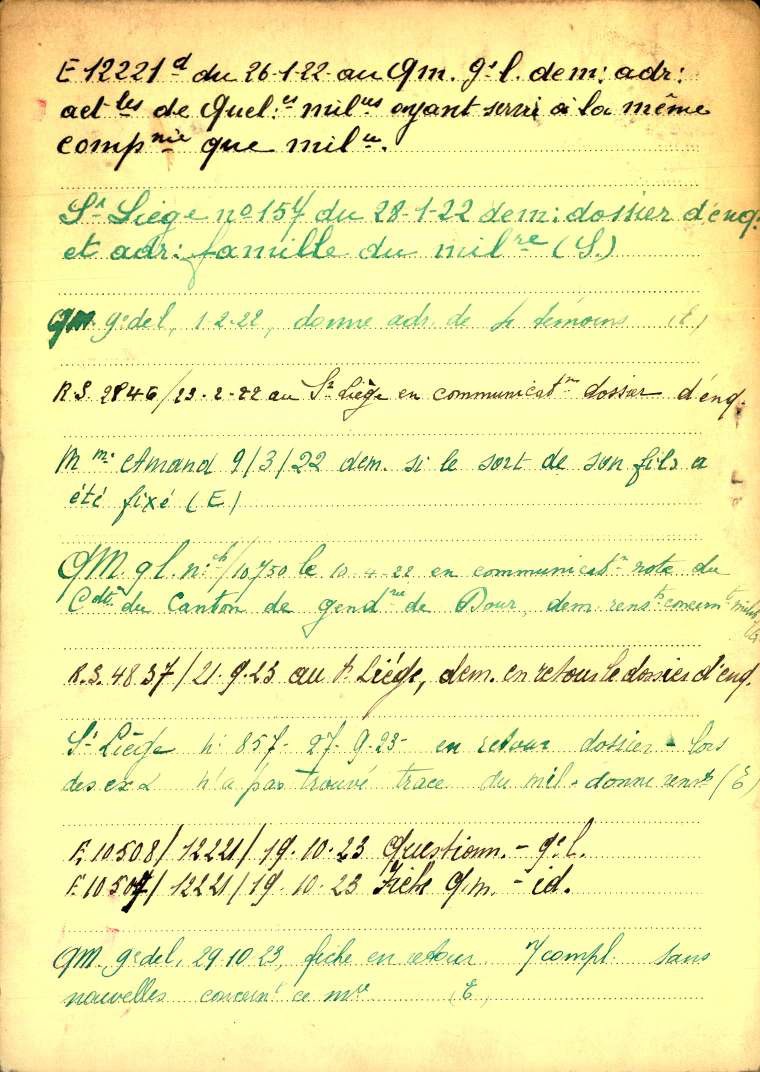 E 12221 d du 26-1-22 au Qm. gel. dem: adr:
act les de quel:es mil res ayant servi à la même
comp nie que mil re.
Sr Liège no 157 du 28-1-22 dem: dossier d'enq.
et adr: famille du mil re (S.)
Qm. g de l, 1-2-22, donne adr. de 4 témoins (E)
R.S. 2846/23-2-22 au Sr Liège en communicat on dossier d'enq.
Mme Amand 9/3/22 dem. si le sort de son fils a
été fixé (E)
QM. gl. n: /10750 le 10-4-22 en communicat on note du
Cdt du Canton de gend rie de Dour, dem. rens ts concern t milre
R.S. 4837/21.9.23 au Sr Liége, dem. en retour le dossier d'enq.
Sr Liège n: 857- 27-9-23- en retour dossier - lors
des ex n'a pas trouvé trace du mil. donne rens ts (E)
E. 10508/12221/19.10.23 Questionn. - ge l.
E. 10507/12221/19.10.23 Fiche Q.m. - id.
QM. g de l, 29.10.23, fiche en retour 7 compl. sans
nouvelles concern t ce mre (E)